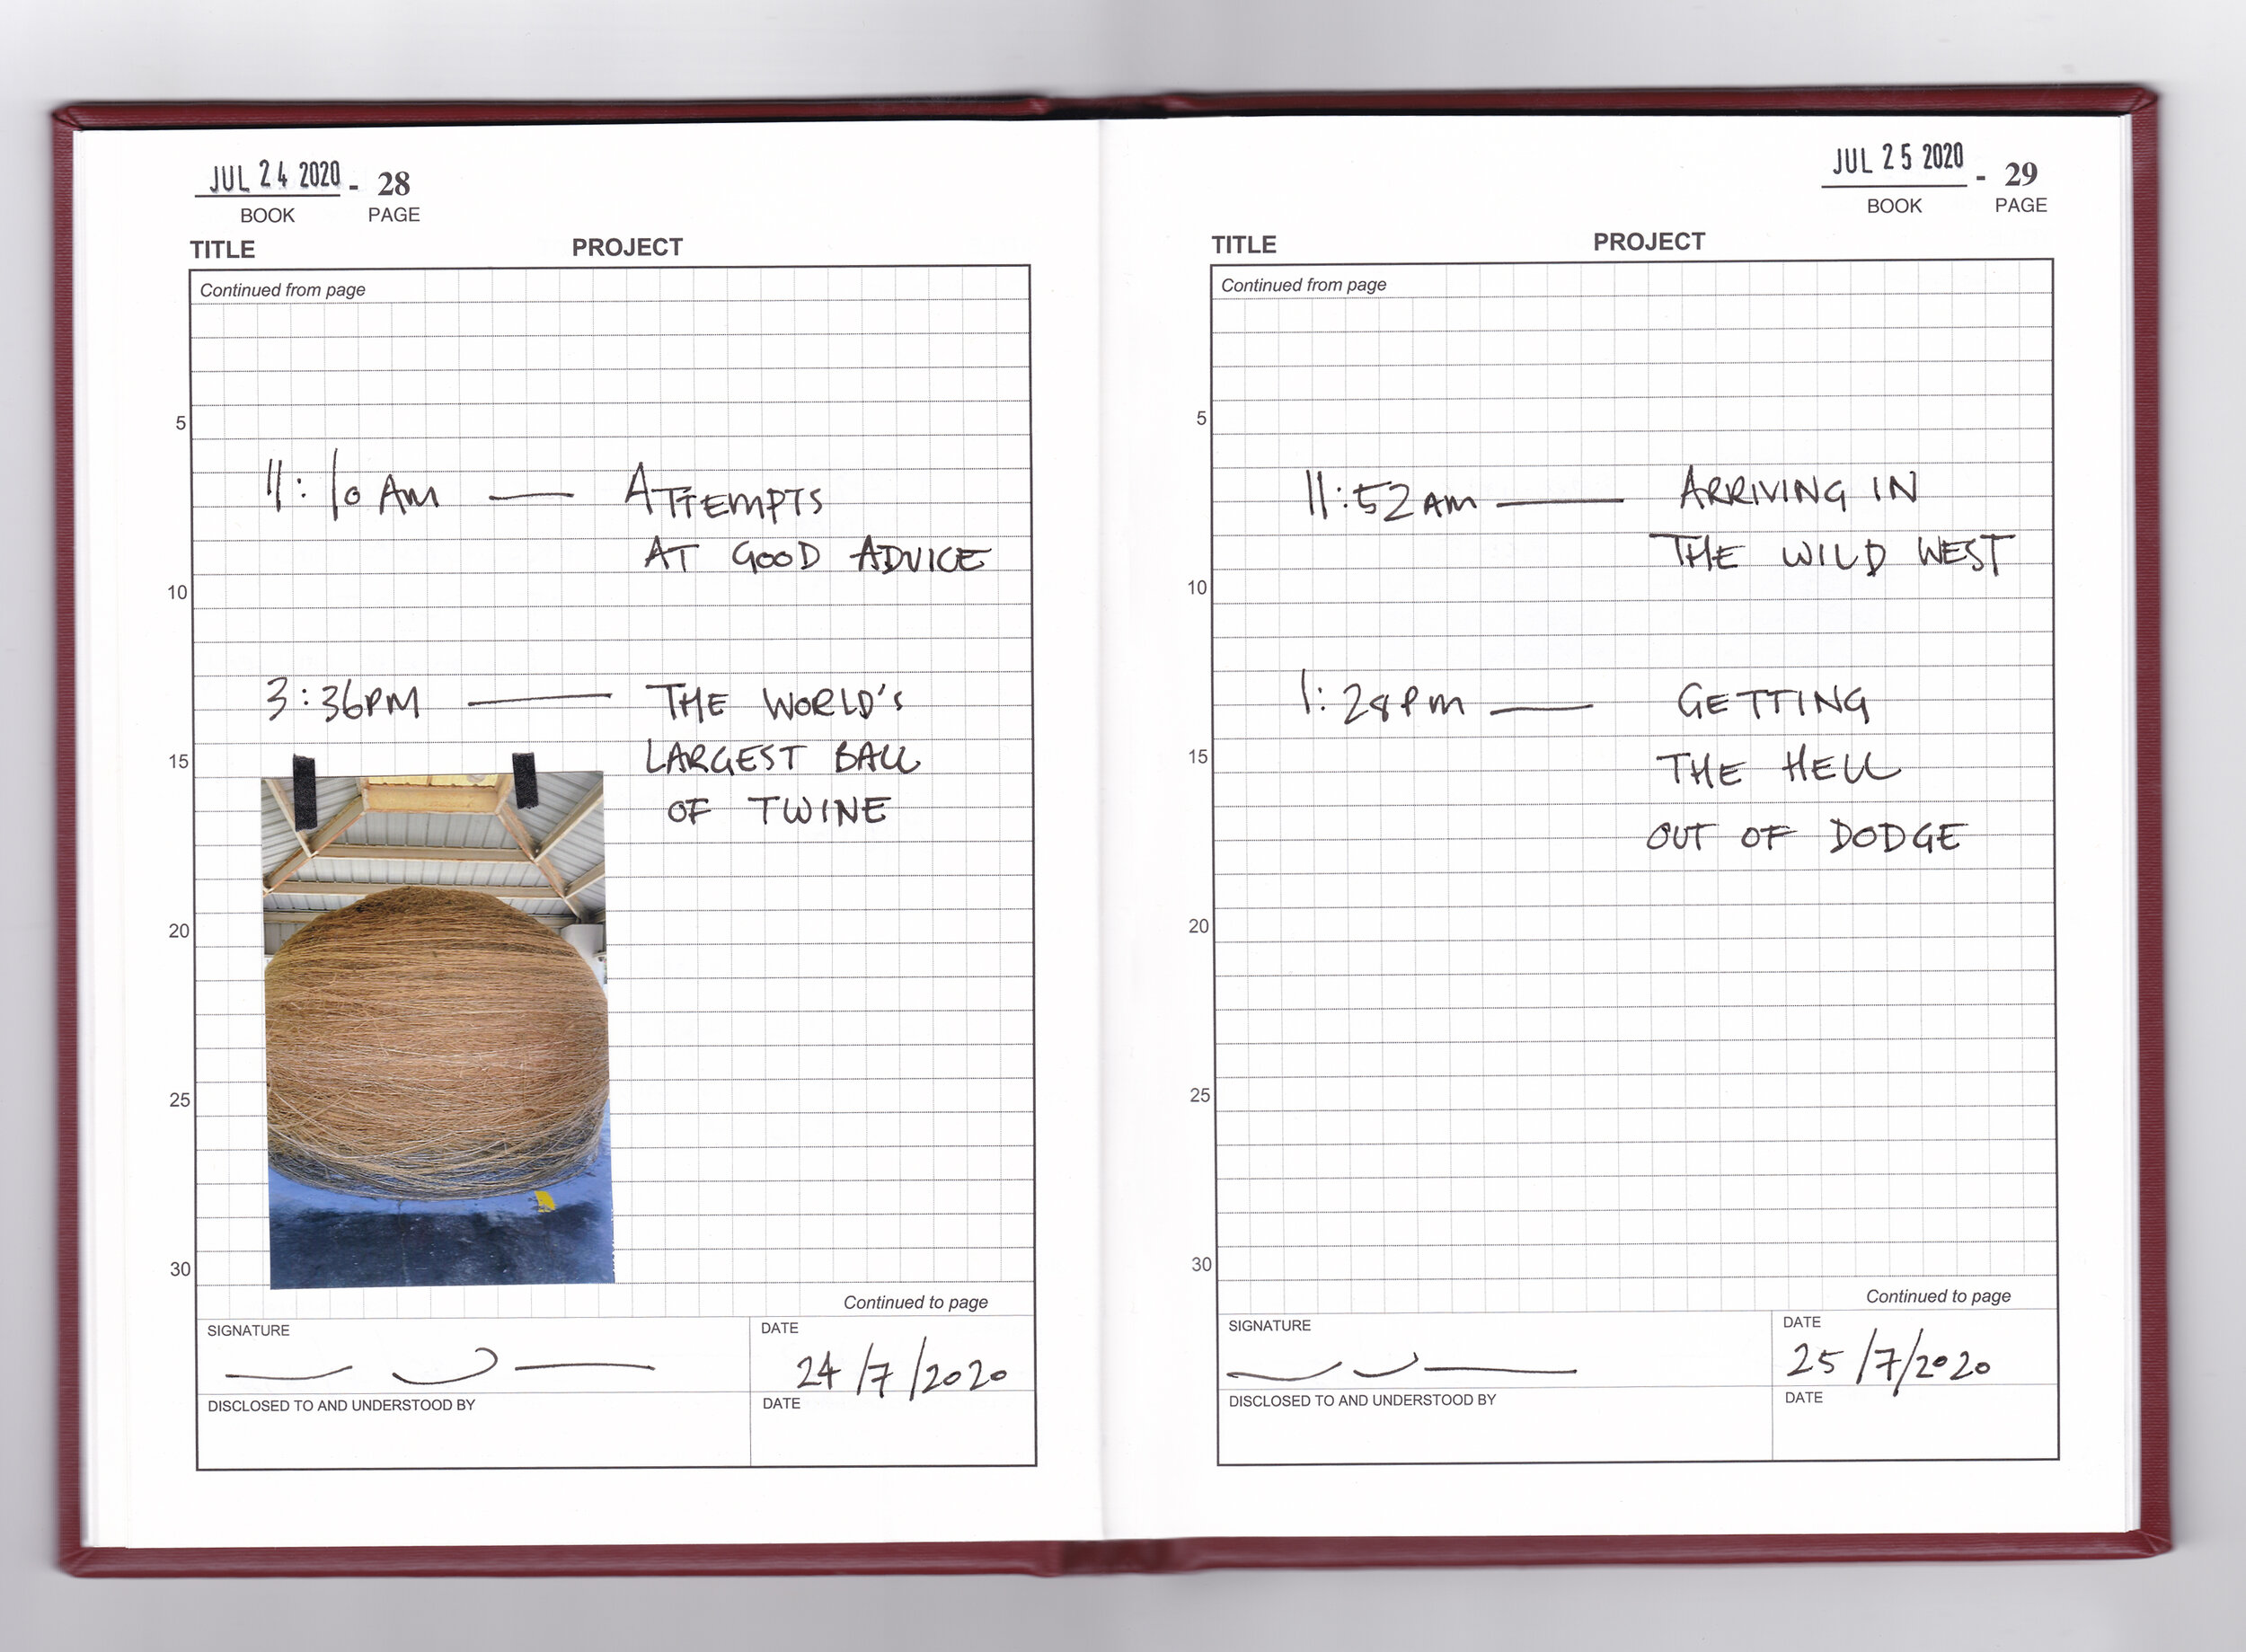 JUL 24 2020 - 28
BOOK PAGE
TITLE PROJECT
Continued from page
5
11:10 AM — ATTEMPTS
AT GOOD ADVICE
10
3:36PM — THE WORLD'S
15 LARGEST BALL
OF TWINE
20
25
30
Continued to page
SIGNATURE DATE
24/7/2020
DISCLOSED TO AND UNDERSTOOD BY DATE
JUL 25 2020 - 29
BOOK PAGE
TITLE PROJECT
Continued from page
5
11:52AM — ARRIVING IN
THE WILD WEST
10
1:28PM — GETTING
15 THE HELL
OUT OF DODGE
20
25
30
Continued to page
SIGNATURE DATE
25/7/2020
DISCLOSED TO AND UNDERSTOOD BY DATE